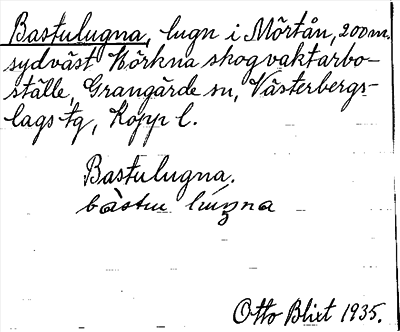 Bastulugna, lugn i Mörtån, 200 m.
sydväst Mörkna skogvaktarbo-
ställe, Grangärde sn, Västerbergs-
lags tg, Kopp l.
Bastulugna.
Otto Blixt 1935.